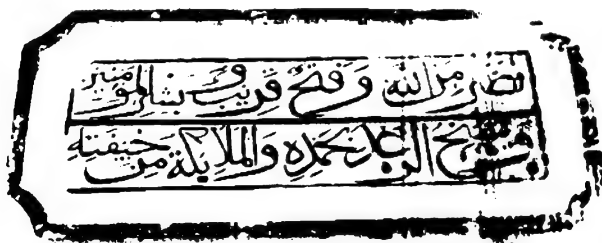 نصر من الله وفتح قريب وبشر المؤمنين
ويسبح الرعد بحمده والملائكة من خيفته